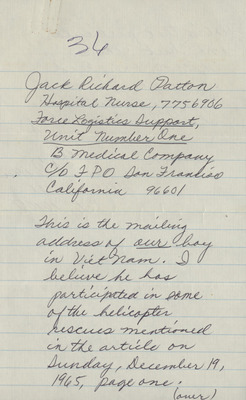 34
Jack Richard Patton
Hospital Nurse, 7756906
Force Logistics Support,
Unit Number One
B Medical Company
C/o F P O San Francisco
California 96601
This is the mailing
address of our boy
in Viet Nam. I
believe he has
participated in some
of the helicopter
rescues mentioned
in the article on
Sunday, December 19,
1965, page one.
(over)